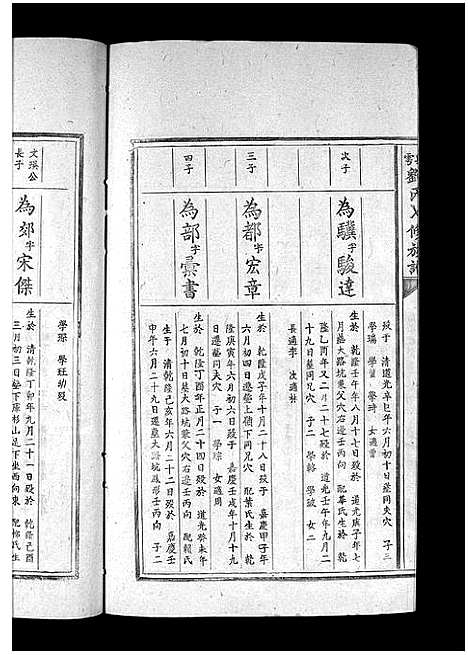 雩
劉氏八修族譜
歿于 清道光辛巳年六月初十日墓同夫穴 子三
學瑞 學 學琦 女適曹
次子
為驥字駿達
生於 乾隆壬午年八月十七日歿於 道光戊子年七
月墓大路坑業父穴右邊壬丙向 配華氏生於 乾
隆乙酉年又二月二十七歿於 道光壬午年九月二
十九日墓同兄穴 子二 學輅 學 女二
長適李 次適林
三子
為都字宏章
生於 乾隆戊子年十月二十八日歿于 嘉慶甲子年
六月初四日遷 上嶺下同兄穴 配葉氏生於 乾
隆庚寅年六月初六日歿于 嘉慶壬戌年十月十九
日遷 同夫穴 子一 學琮 女適周
四子
為部字彙書
生於 乾隆丁酉年正月二十四日歿於 道光癸未年
七月初十日墓大路坑業父穴右邊壬丙向 配賴氏
生于 清乾隆己亥年六月二十二日歿于 嘉慶壬
申年六月二十九日遷墓大路坑 形壬丙向 子二
學 學旺幼歿
文瑛公
長子
為郊字宋傑
生於 清乾隆丁卯年九月二十一日歿於 乾隆己酉
三月初三日墊下 杉山足下坐西向東 配 氏生